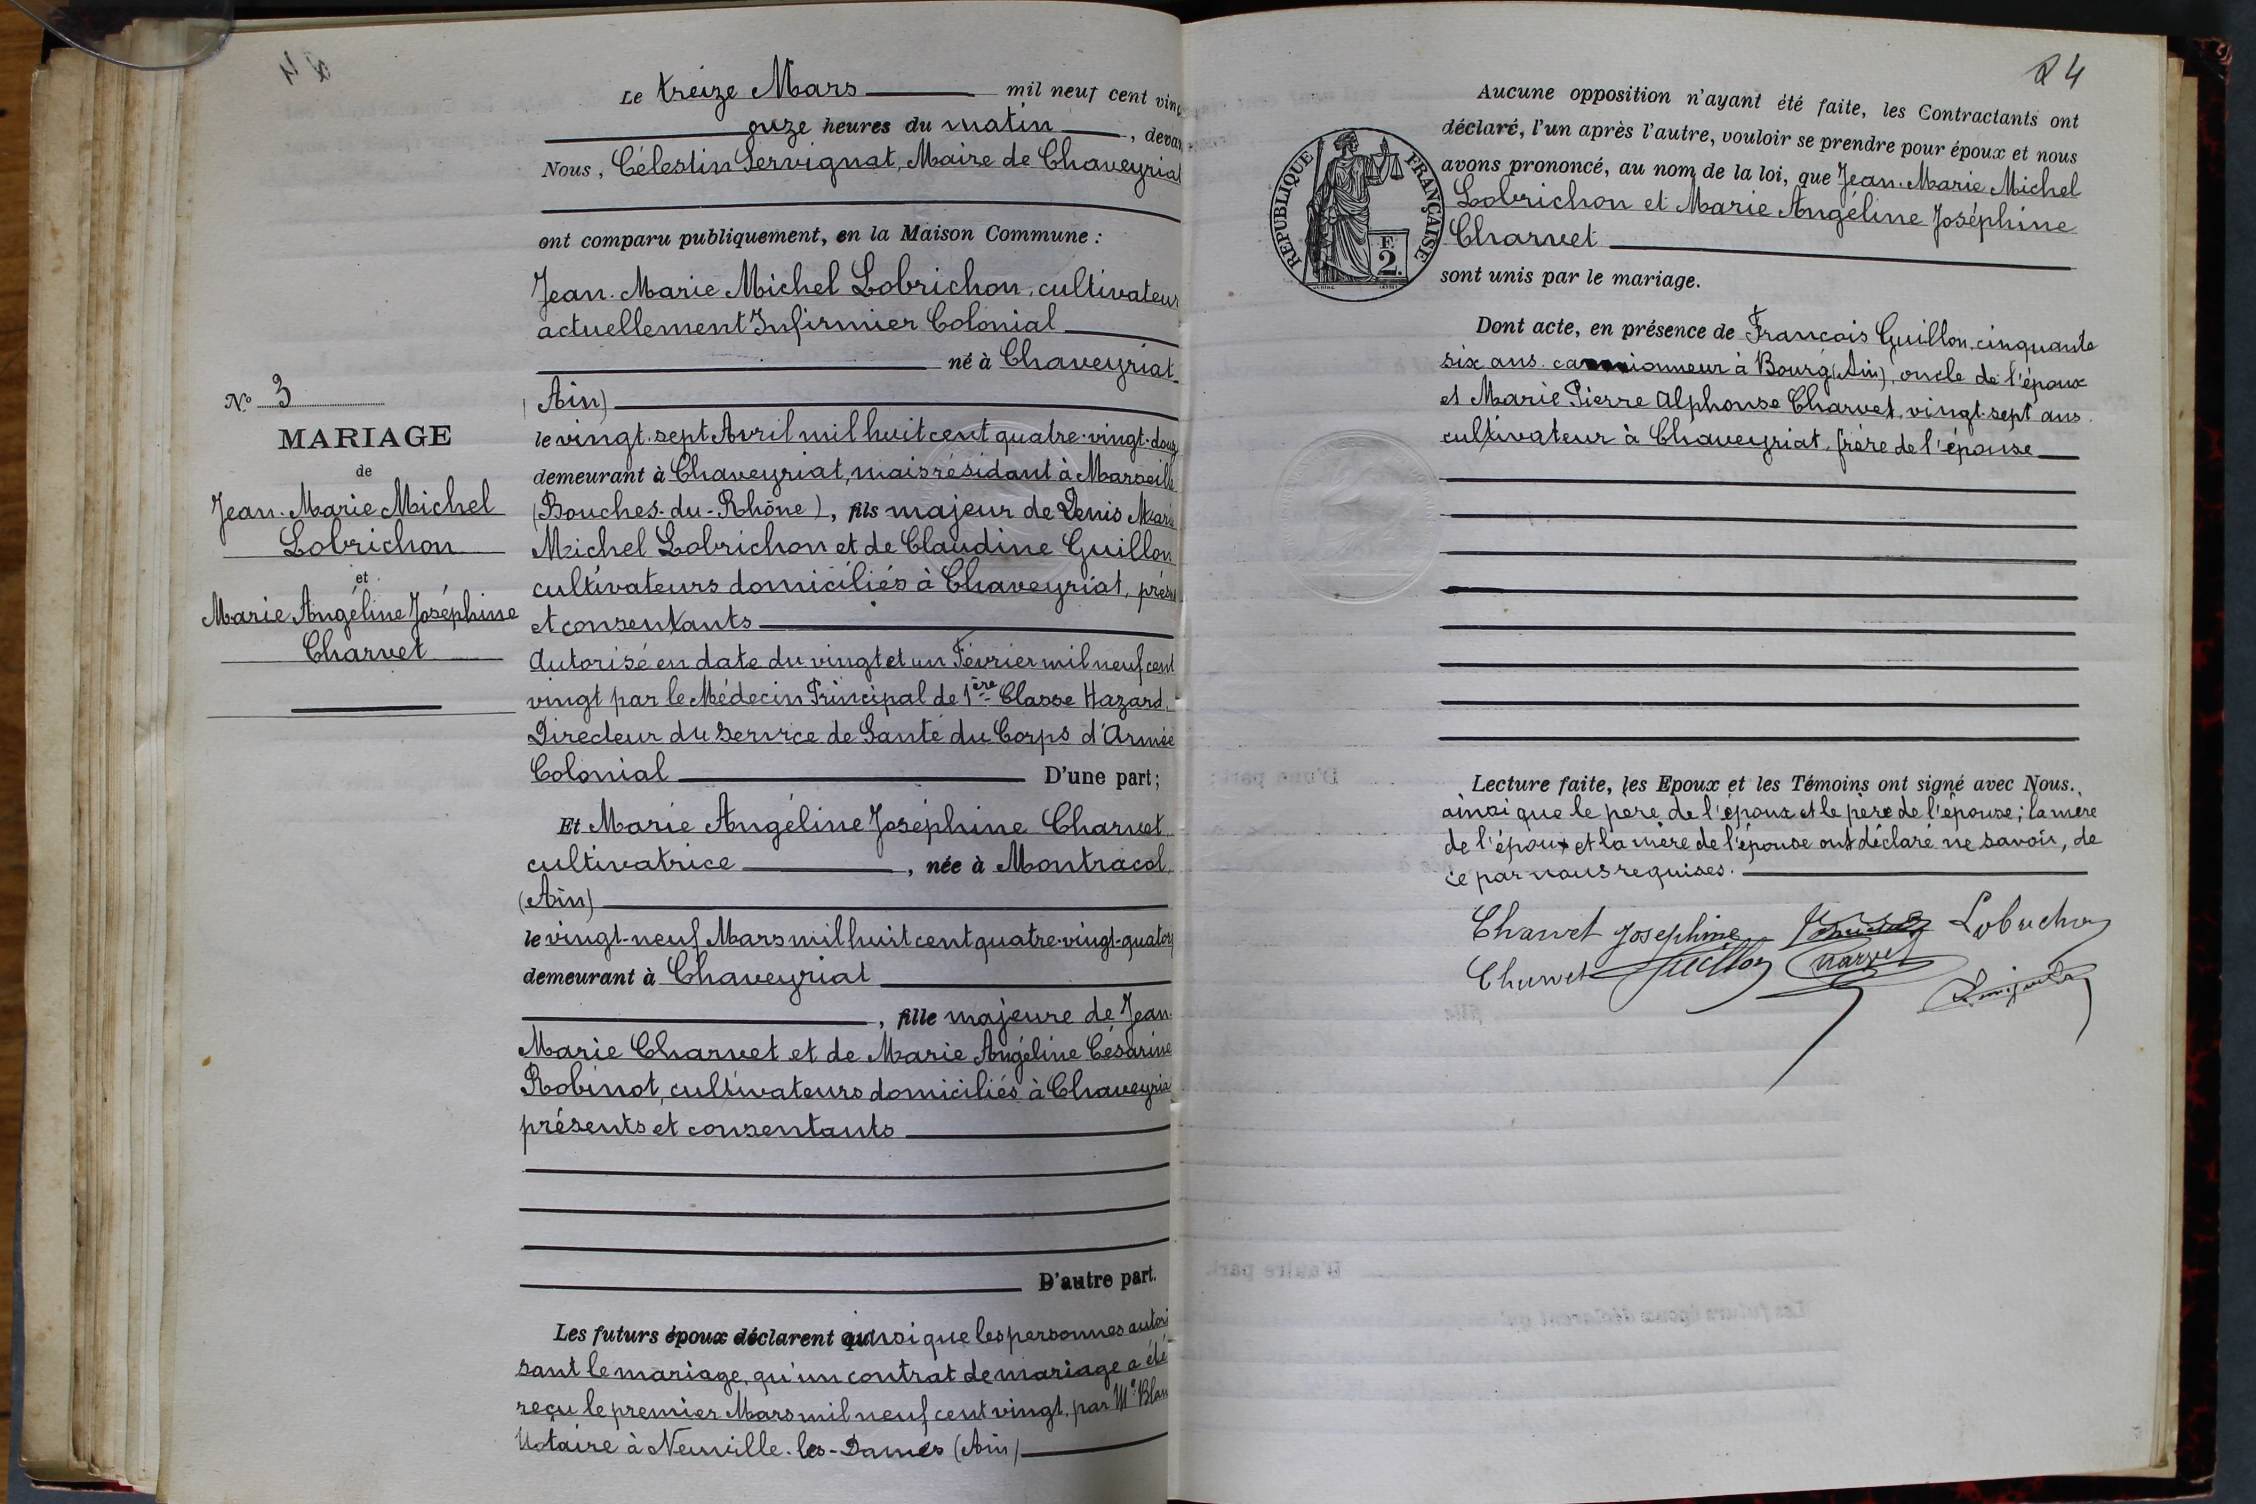 Le treize Mars mil neuf cent
onze heures du matin,
Nous, Célestin Servignat, Maire de Chaveyriat
ont comparu publiquement, en la Maison Commune :
Jean-Marie Michel Lobrichon, cultivateur
actuellement Infirmier Colonial
né à Chaveyriat
(Ain)
N° 3
MARIAGE
de
Jean-Marie Michel
Lobrichon
et
Marie Angéline Joséphine
Charvet
le vingt-sept Avril mil huit cent quatre-vingt-
demeurant à Chaveyriat, mais résidant à Marseille
(Bouches-du-Rhône), fils majeur de Denis Marie
Michel Lobrichon et de Claudine Guillon
cultivateurs domiciliés à Chaveyriat,
et consentants
Autorisé en date du vingt et un Février mil neuf cent
vingt par le Médecin Principal de 1ère Classe Hazard,
Directeur du Service de Santé du Corps d'Armée
Colonial D'une part;
Et Marie Angéline Joséphine Charvet
cultivatrice, née à Montracol
(Ain)
le vingt-neuf Mars mil huit cent quatre-vingt-
demeurant à Chaveyriat
, fille majeure de Jean-
Marie Charvet et de Marie Angéline Césarine
Robinot, cultivateurs domiciliés à
présents et consentants
D'autre part.
Les futurs époux déclarent ainsi que les personnes autori
sant le mariage, qu'un contrat de mariage a été
reçu le premier Mars mil neuf cent vingt, par Me
Notaire à Neuville-les-Dames (Ain)
24
Aucune opposition n'ayant été faite, les Contractants ont
déclaré, l'un après l'autre, vouloir se prendre pour époux et nous
avons prononcé, au nom de la loi, que Jean-Marie Michel
Lobrichon et Marie Angéline Joséphine
Charvet
sont unis par le mariage.
RÉPUBLIQUE FRANÇAISE
F.
2.
Dont acte, en présence de François Guillon, cinquante
six ans, camionneur à Bourg (Ain), oncle de l'époux
et Marie Pierre Alphonse Charvet, vingt-sept ans
cultivateur à Chaveyriat, frère de l'épouse
Lecture faite, les Epoux et les Témoins ont signé avec Nous.
ainsi que le père de l'époux et le père de l'épouse; la mère
de l'époux et la mère de l'épouse ont déclaré ne savoir, de
ce par nous requises.
Charvet Josephine Lobrichon
Charvet Guillon Charvet